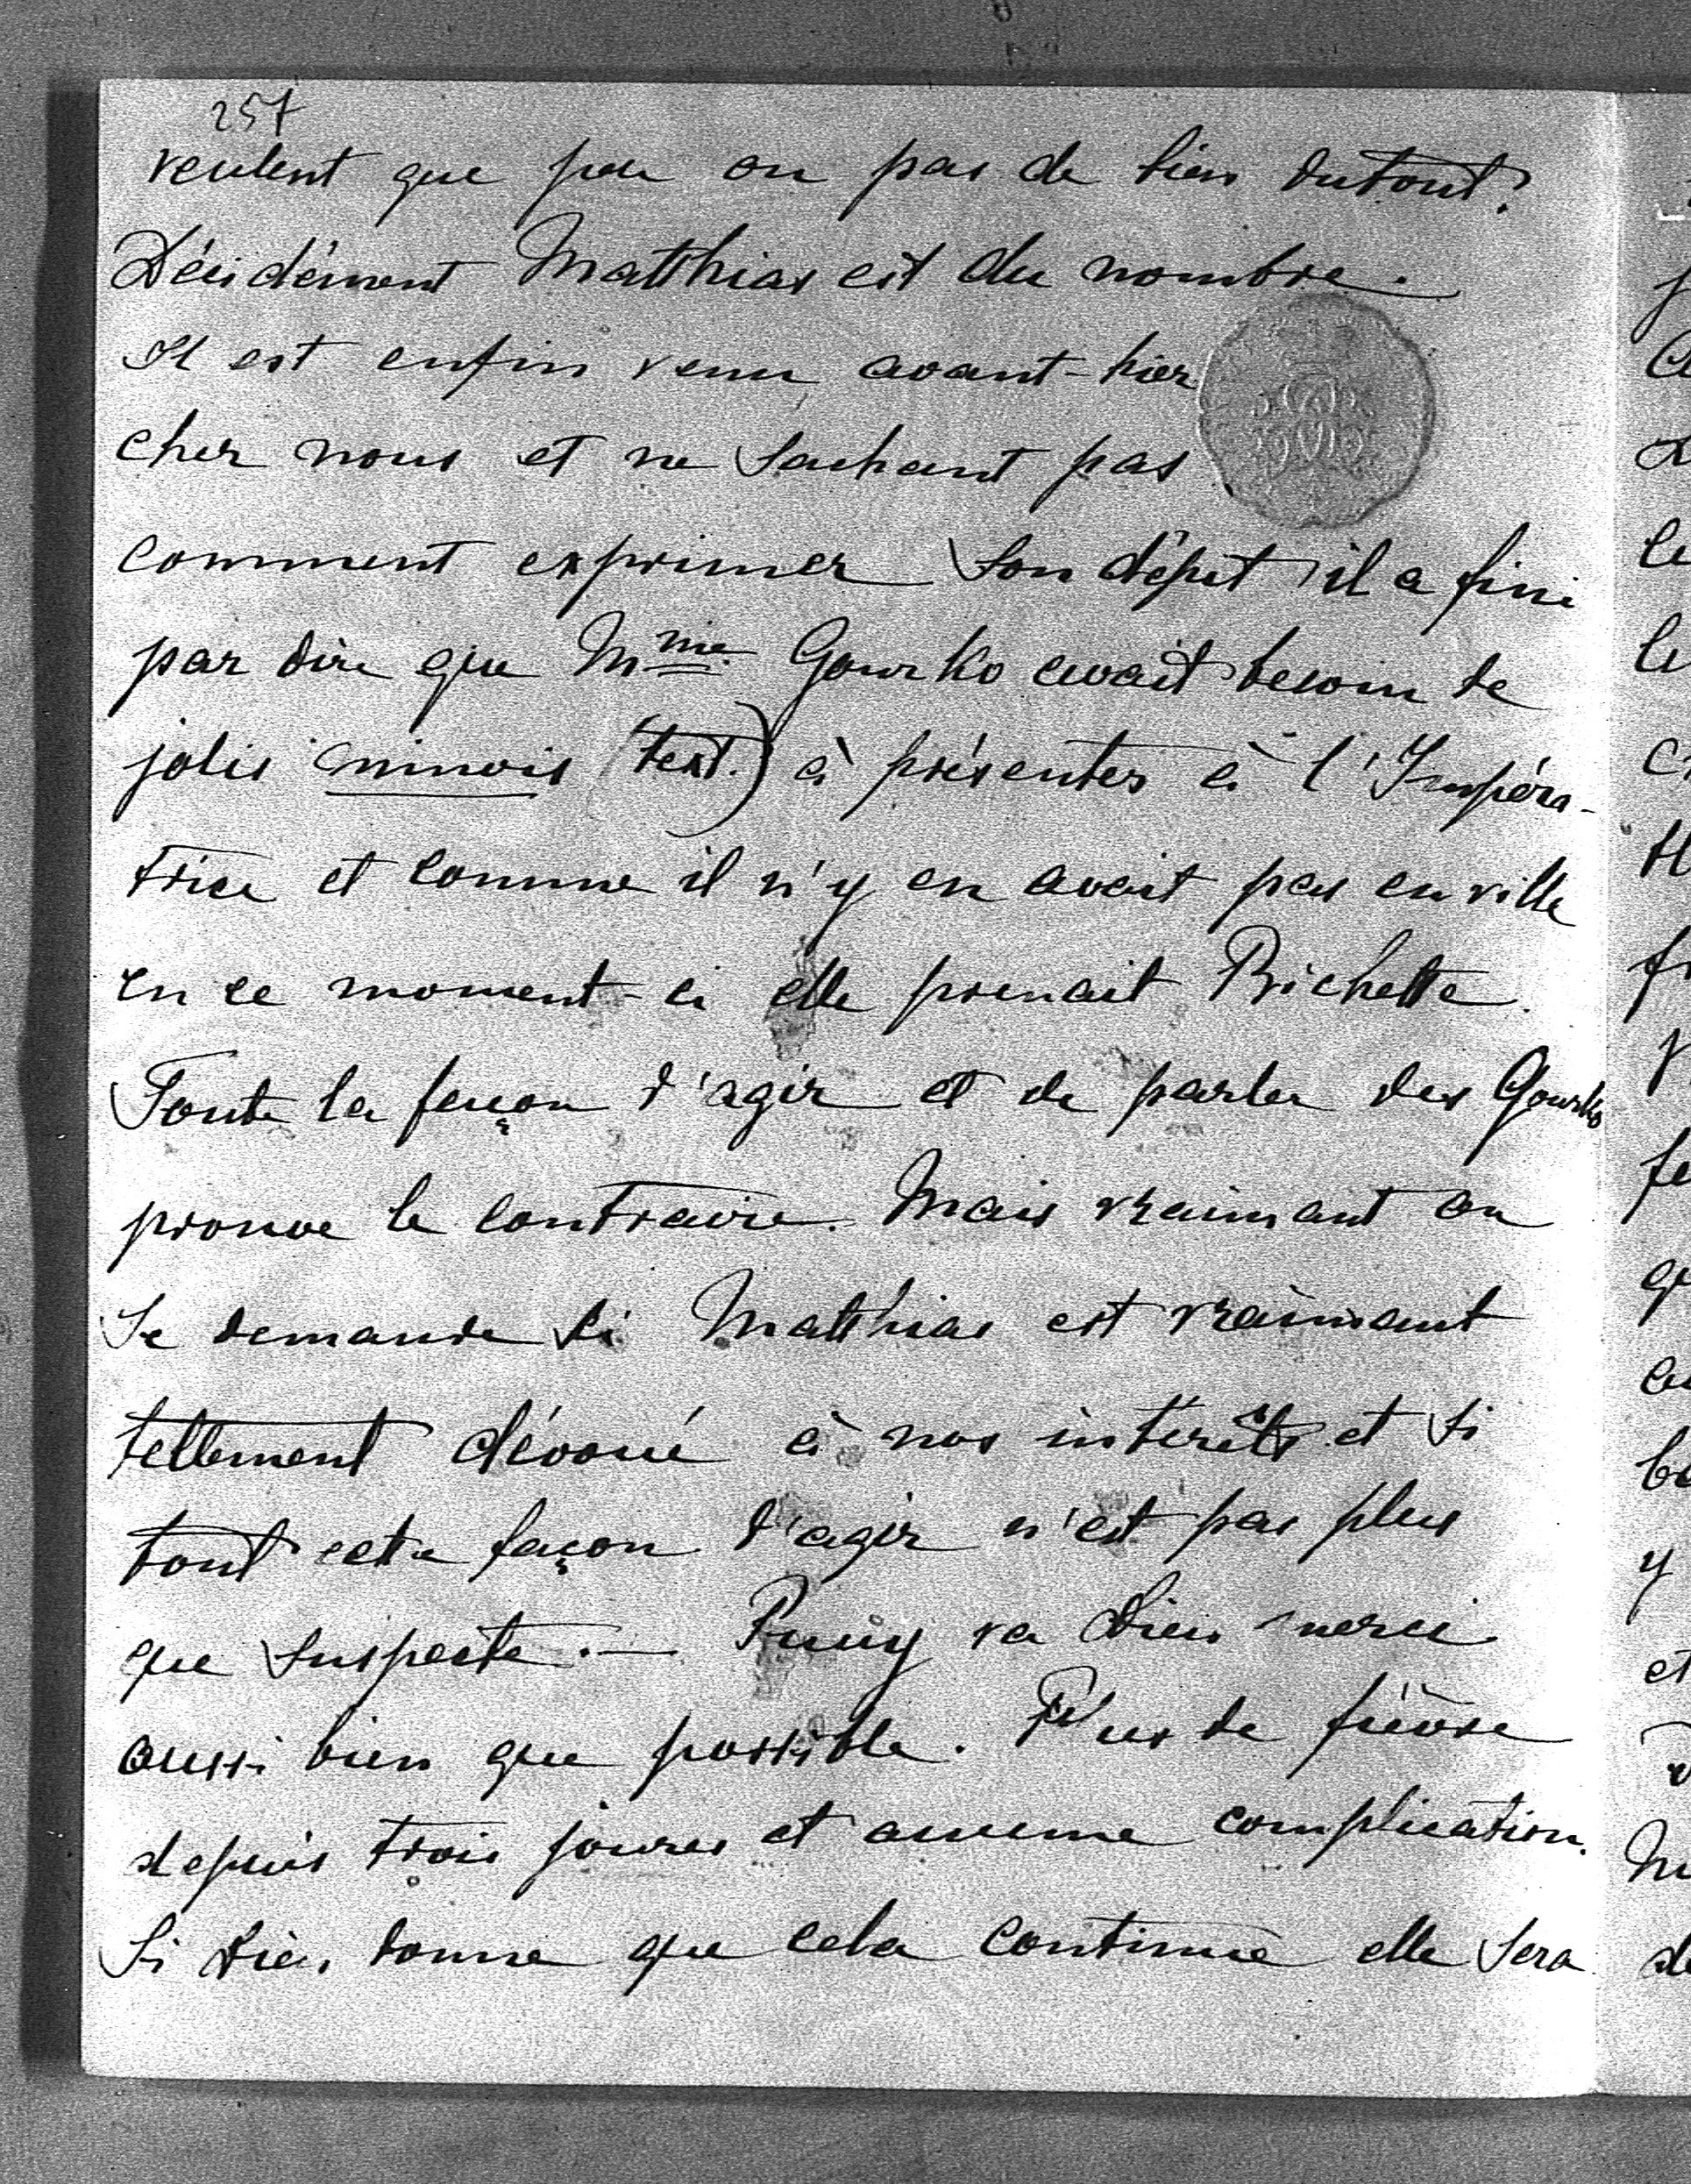 257
veulent que peu ou pas de bien dutout.
Décidément Matthias est du nombre.
Il est enfin venu avant-hier
chez nous et ne sachant pas
comment exprimer son dépit il a fini
par dire que Mme Gourko avait besoin de
jolis minois (text.) à présenter à l'Impéra-
trice et comme il n'y en avait pas en ville
en ce moment-ci elle prenait Bichette.
Toute la façon d'agir et de parler des Gourko
prouve le contraire. Mais vraimant on
se demande si Matthias est vraimant
tellement dévoué à nos intérêts et si
tout cette façon d'agir n'est pas plus
que suspecte. — va Dieu merci
aussi bien que possible. Plus de fièvre
depuis trois jours et aucune complication.
Si Dieu donne que cela continue elle sera